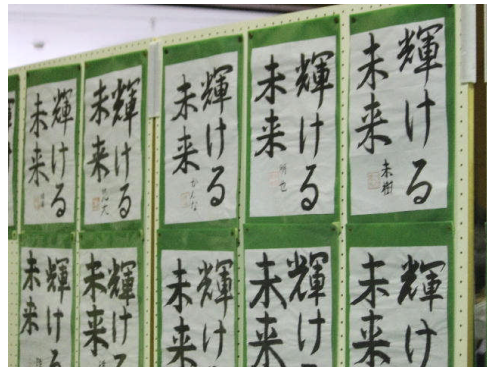 輝ける
未来
未樹
輝ける
未来
輝ける
未来
かんな
輝ける
未来
輝ける
未来
輝け
未来
輝け
未来
輝ける
未来
輝ける
未来
輝ける
未来